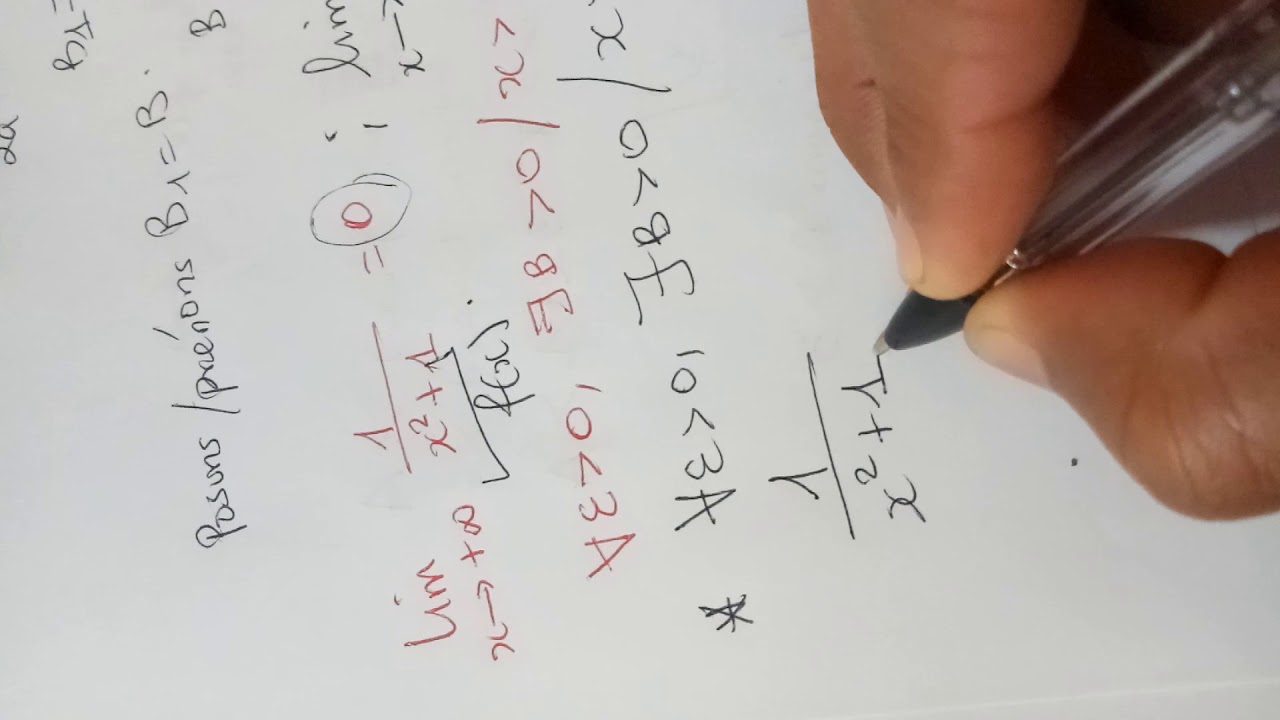 B1=
B
Posons/prenons B1=B.
lim x→+∞ 1/(x²+1) = 0 ; lim x→
f(x).
∀ε>0, ∃B>0 / x>
* ∀ε>0, ∃B>0 / x
1/(x²+1